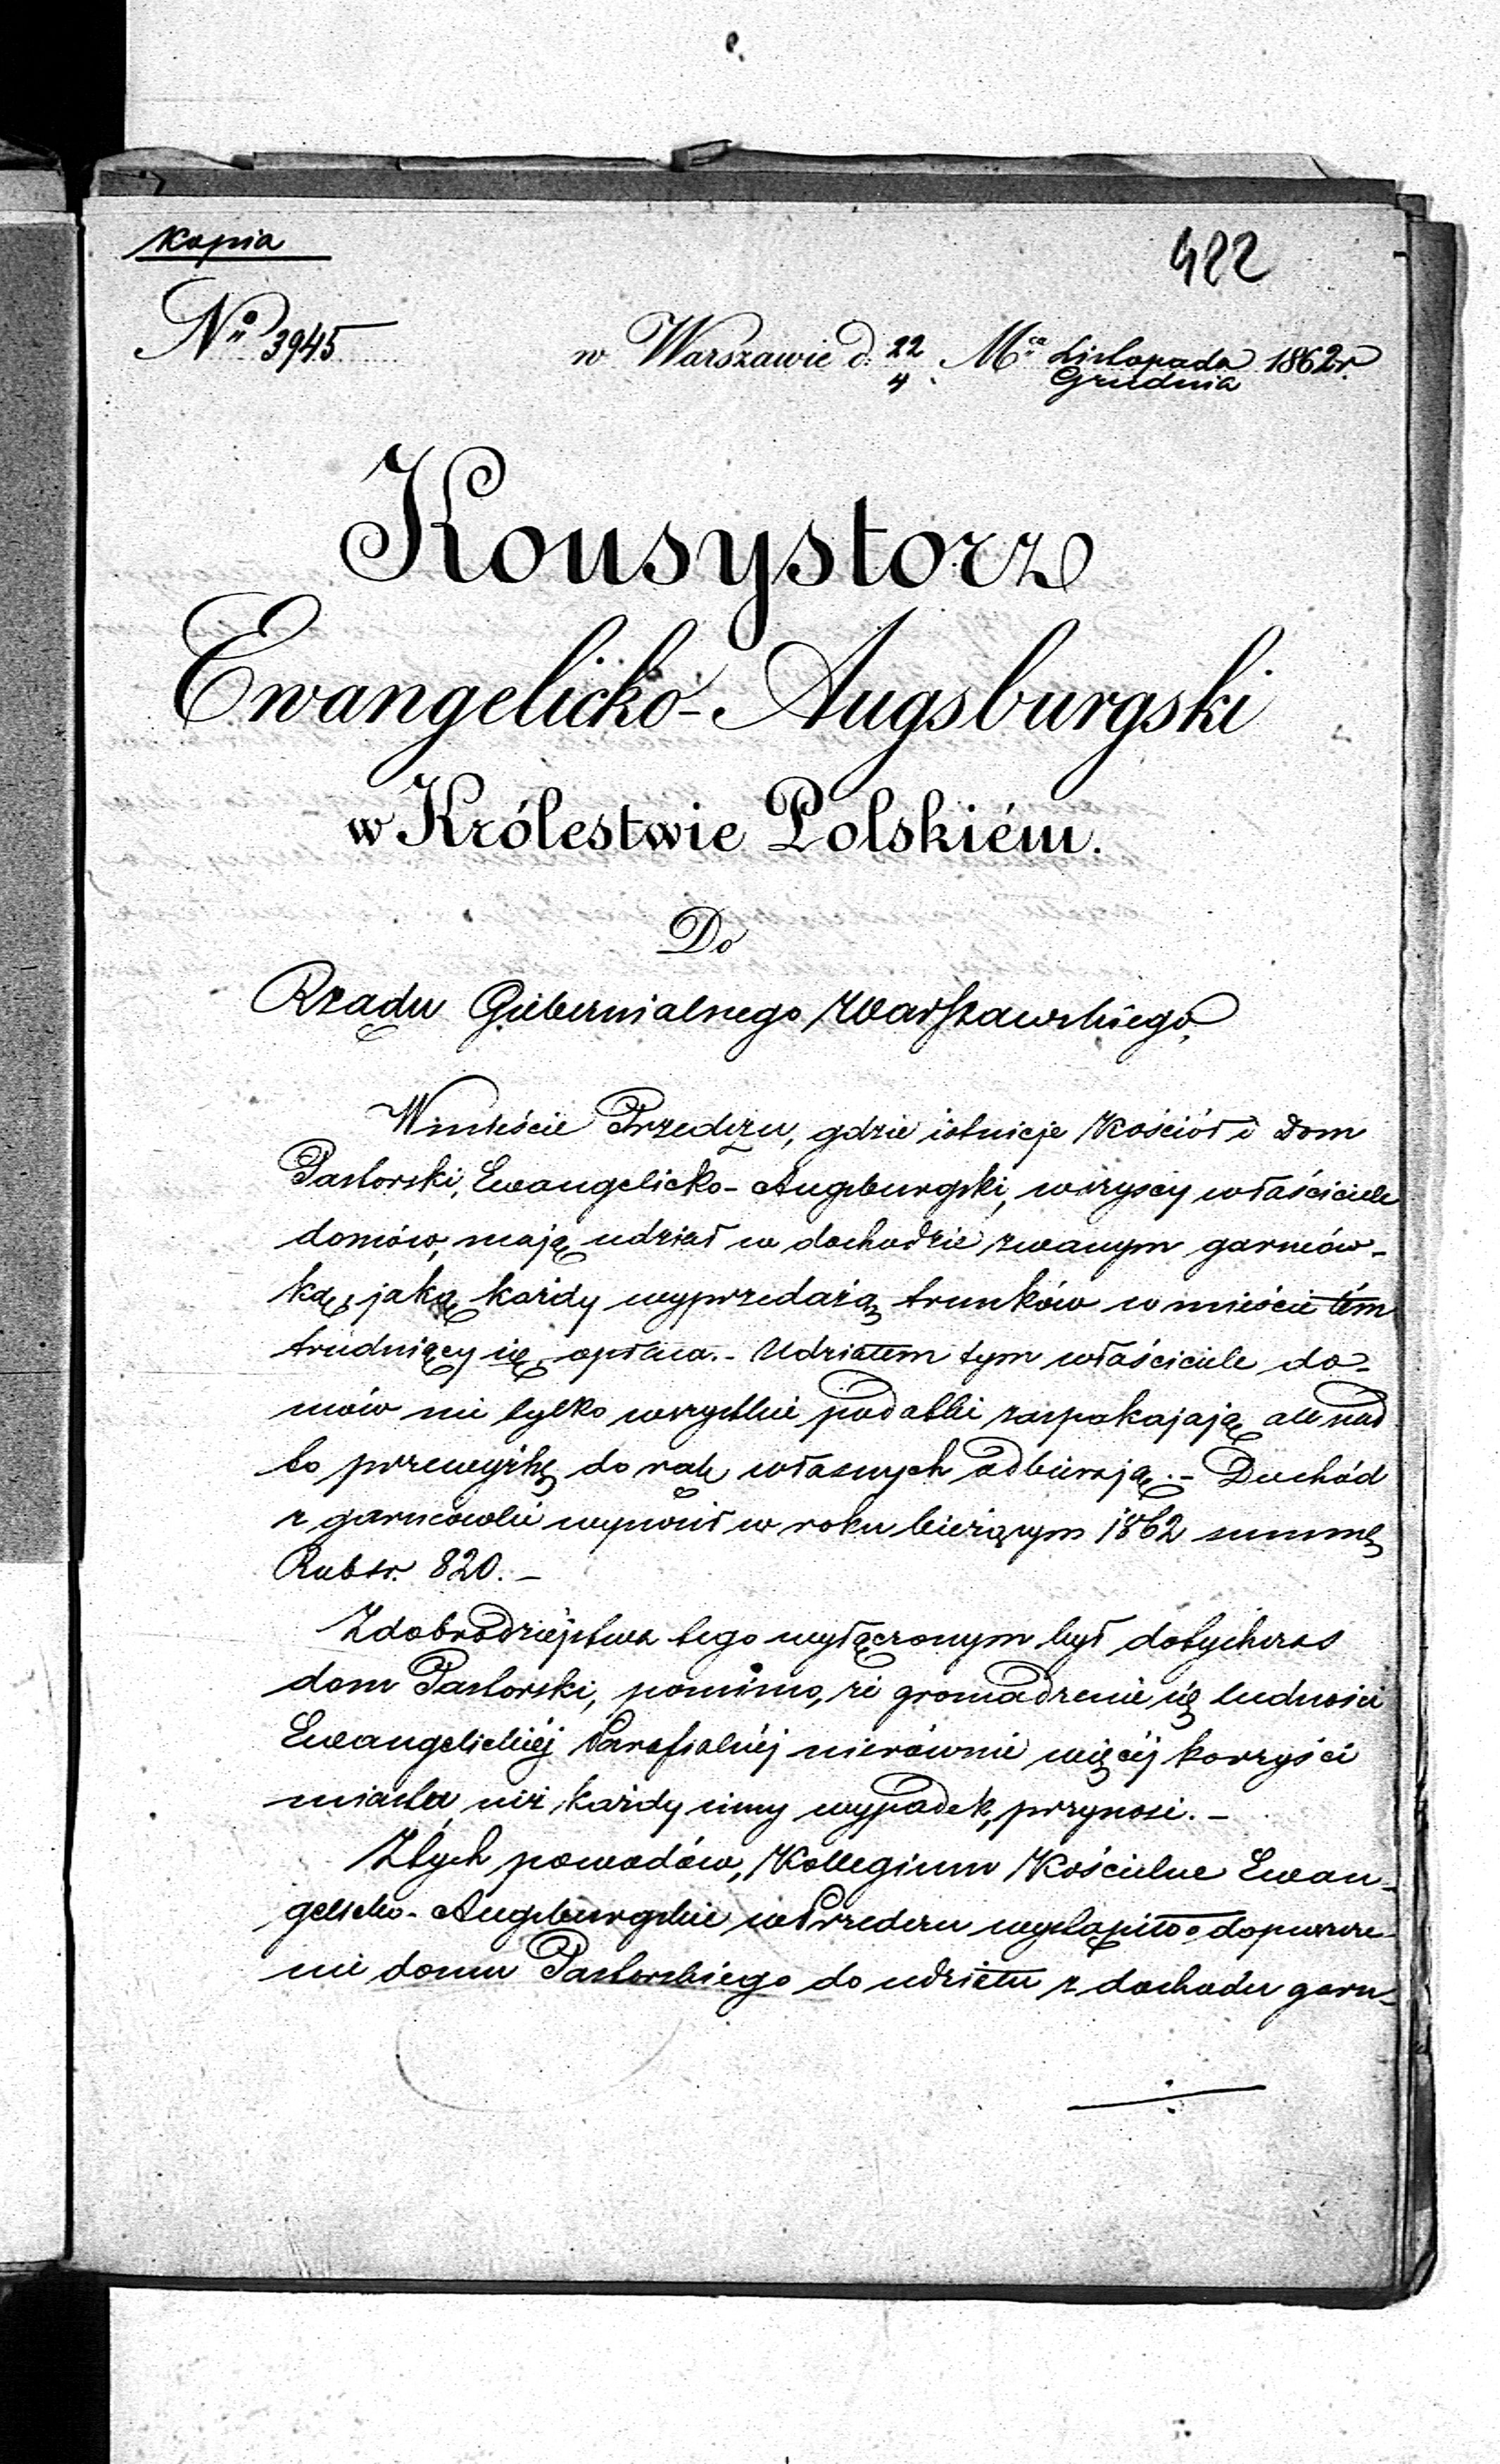 Kopia
482
No 3945
w Warszawie d. 22/4 Mca Listopada/Grudnia 1862 r.
Konsystorz
Ewangelicko-Augsburgski
w Królestwie Polskiém.
Do
Rządu Gubernialnego Warszawskiego
W mieście Przedczu, gdzie istnieje Kościół i Dom
Pastorski, Ewangelicko-Augsburgski, wszyscy właściciele
domów, mają udział w dochodzie zwanym garnców-
ką, jaką każdy wyprzedażą trunków w mieście tém
trudniący się, opłaca.- Udziałem tym właściciele do-
mów nie tylko wszystkie podatki zaspakajają, ale nad
to przewyżkę do rąk własnych odbierają.- Dochód
z garncówki wynosił w roku bieżącym 1862 summę
Rubsr. 820.-
Z dobrodziéjstwa tego wyłączonym był dotychczas
dom Pastorski, pomimo, że gromadzenie się ludności
Ewangelickiéj Parafialnéj nierównie więcéj korzyści
miastu, niż każdy inny wypadek, przynosi.-
Z tych powodów, Kollegium Kościelne Ewan-
gelicko-Augsburgskie w Przedczu wystąpiło o dopuszcze-
nie domu Pastorskiego do udziału z dochodu garn-